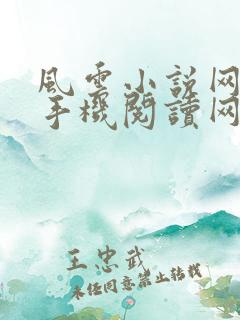 風雲小説网
手機閱讀网
王忠武
未经同意禁止转载